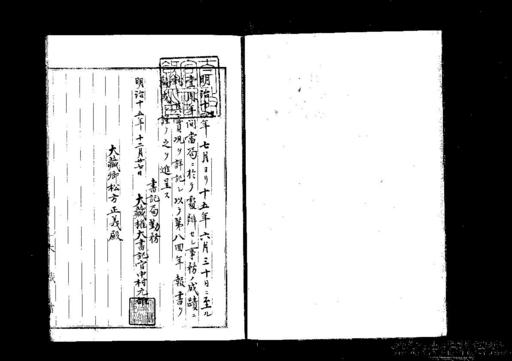 明治十四年七月ヨリ十五年六月三十日ニ至ル
壹周年間當局ニ於テ處辨セシ事務ノ成蹟ニ
實況ヲ詳記シ以テ第八回年報書ヲ
謹テ之ヲ進呈ス
書記局勤務
明治十五年十二月廿七日 大藏権大書記官中村元雄
大藏卿松方正義殿